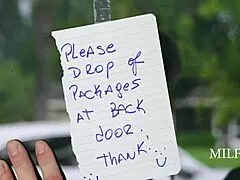 PLEASE
DROP OF
PACKAGES
AT BACK
DOOR.
THANK.
MILF